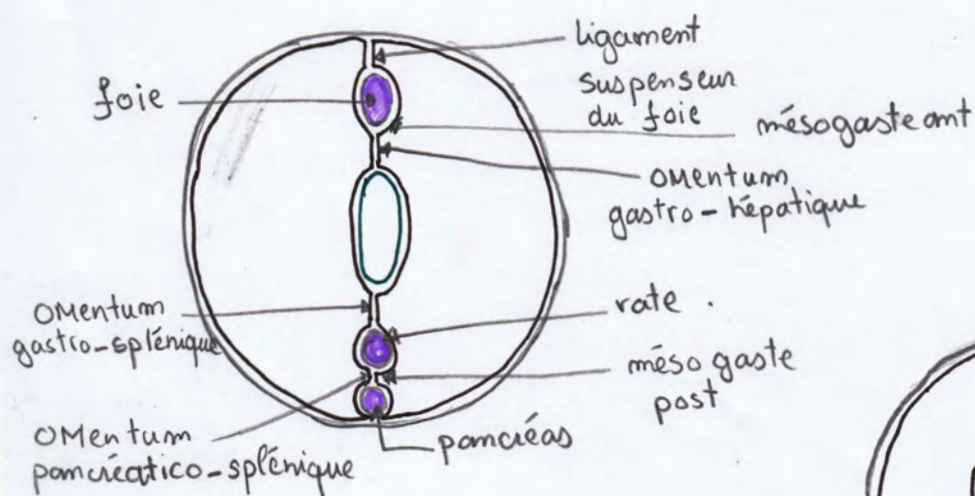 ligament
suspenseur
du foie
foie
mésogaste ant
omentum
gastro-hépatique
omentum
gastro-splénique
rate.
méso gaste
post
omentum
pancréatico-splénique
pancréas